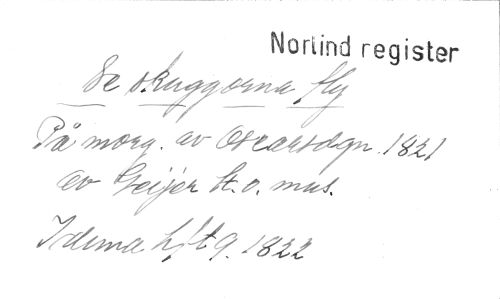 Norlind register
Se skuggorna fly
På morg. av Oscarsdgn. 1821
av Geijer t. o. mus.
Iduna hft 9. 1822